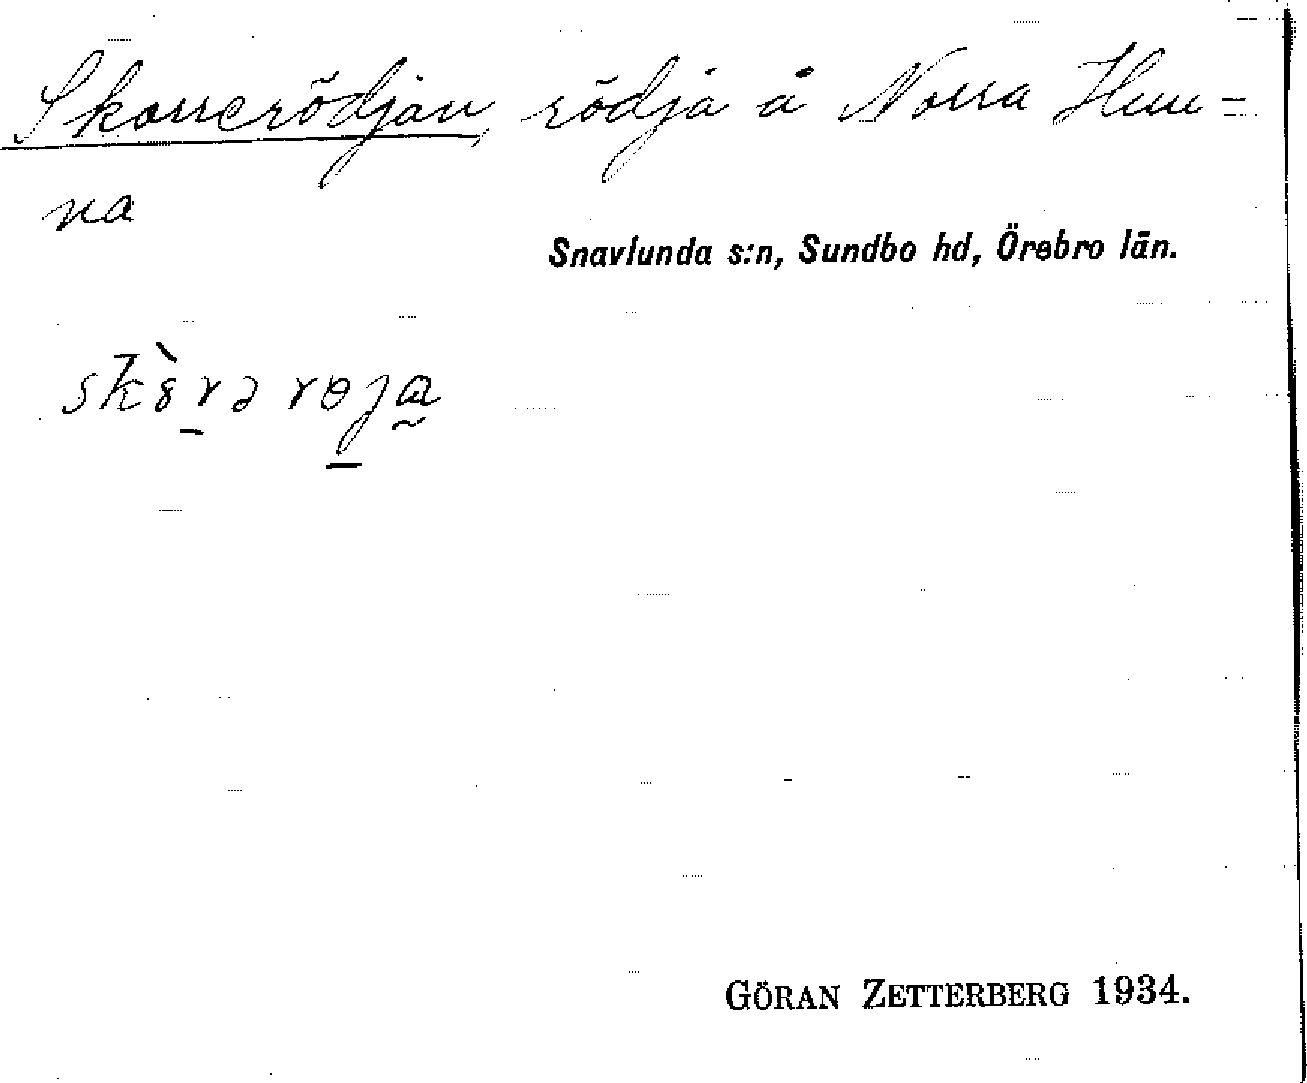 Skorrerödjan, rödja å Norra Hun=
na
Snavlunda s:n, Sundbo hd, Örebro län.
GÖRAN ZETTERBERG 1934.